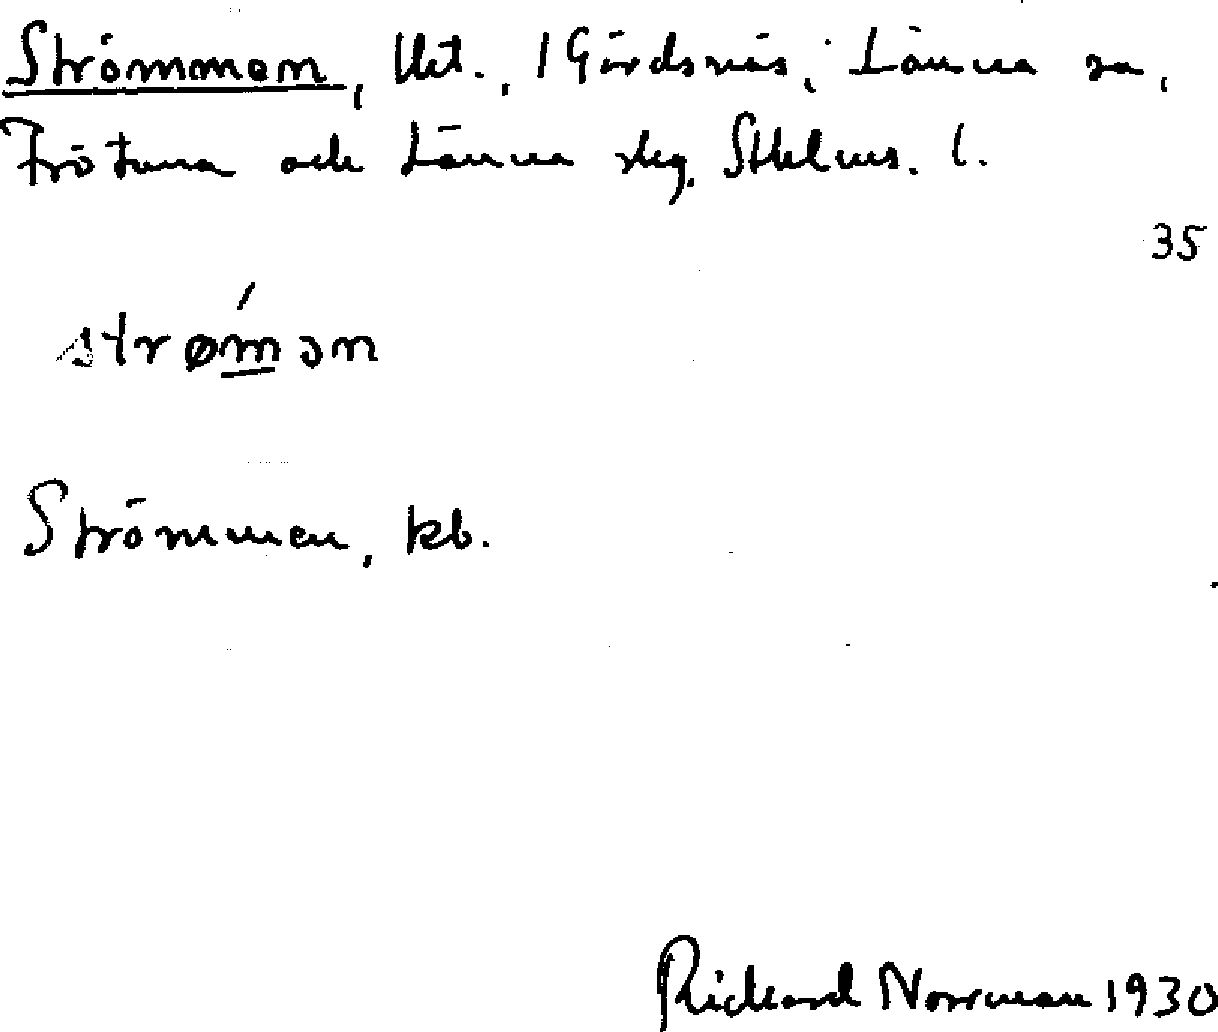 Strömmen, lht., 1 Gärdsnäs, Länna sn,
Frötuna och Länna skg. Sthlms. l.
35
strøḿ̲ən
Strömmen, kb.
Rickard Norrman 1930